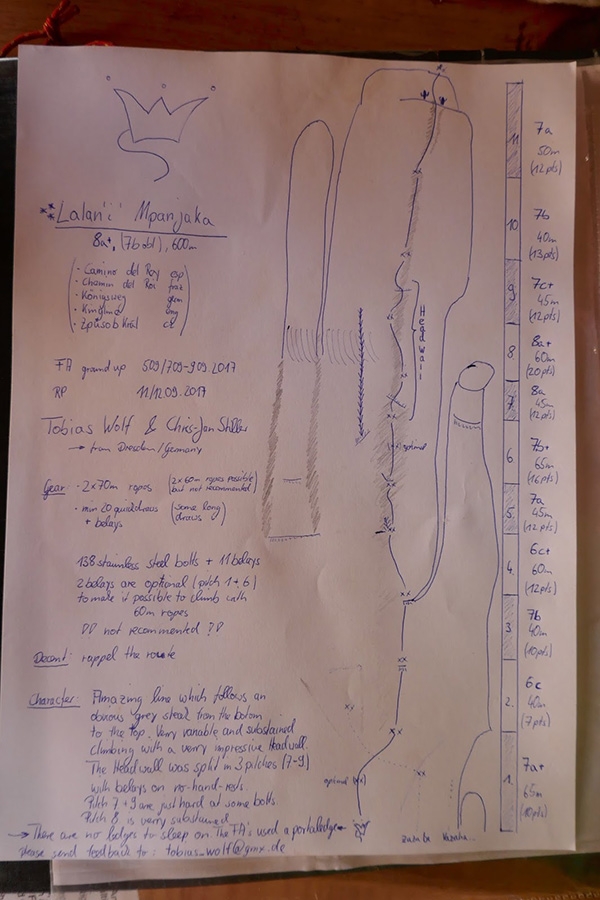 ** Lalan'i Mpanjaka
8a+, (7b obl), 600m
- Camino del Rey esp
- Chemin del Roi fraz
- Königsweg ger
- Kingline eng
- Způsob Král cz
FA ground up 5.09/7.09-9.09.2017
RP 11/12.09.2017
Tobias Wolf & Chris-Jan Stiller
→ from Dresden/Germany
Gear - 2x70m ropes (2x60m ropes possible but not recommended)
- min 20 quickdraws (some long)
+ belays draws
138 stainless steel bolts + 11 belays
2 belays are optional (pitch 1+6)
to make it possible to climb with
60m ropes
not recommended
Decent: rappel the route
Character: Amazing line which follows an
obvious grey steak from the bottom
to the top. Verry variable and substained
climbing with a verry impressive Headwall.
The Headwall was split in 3 pitches (7-9)
with belays on no-hand-rests.
Pitch 7+9 are just hard at some bolts.
Pitch 8 is verry substained
→ There are no ledges to sleep on. The FA's used a portaledge
please send feedback to: tobias_wolf@gmx.de
Headwall
optimal
optimal
11 7a
50m
(12pts)
10 7b
40m
(13pts)
9 7c+
45m
(12pts)
8 8a+
60m
(20pts)
7 8a
45m
(12pts)
6 7b+
65m
(16pts)
5. 7a
45m
(12pts)
4. 6c+
60m
(12pts)
3 7b
40m
(10pts)
2. 6c
40m
(7pts)
1. 7a+
65m
(10pts)